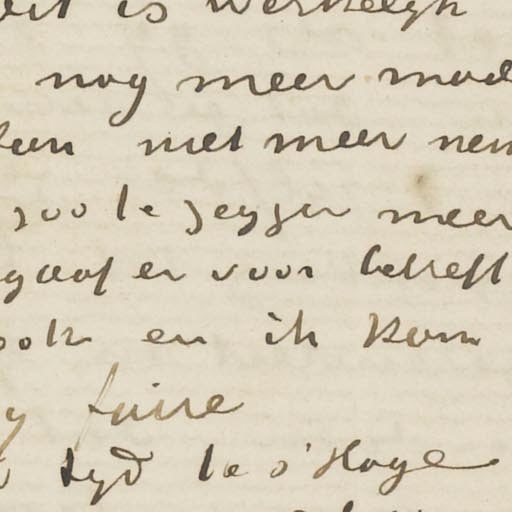 dit is werkelijk
nog meer mod
kan niet meer nem
zoo te zeggen meer
gaaf er voor betreft
ook en ik kom
y faire
tyd te s'Hage